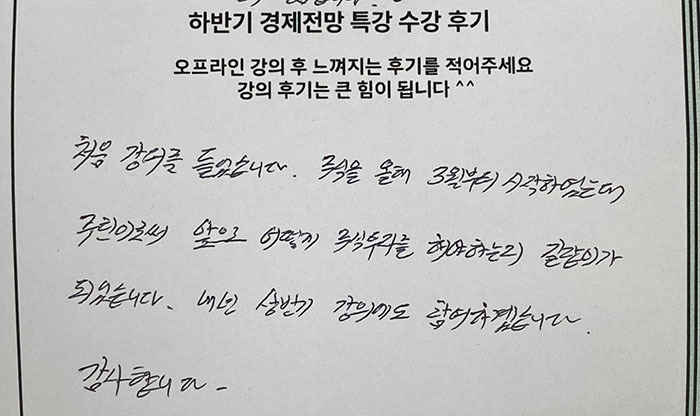 하반기 경제전망 특강 수강 후기
오프라인 강의 후 느껴지는 후기를 적어주세요
강의 후기는 큰 힘이 됩니다 ^^
처음 강의를 들었습니다. 주식을 올해 3월부터 시작하였는데
주린이로써 앞으로 어떻게 주식투자를 해야하는지 길랑이가
되었습니다. 내년 상반기 강의에도 참여하겠습니다.
감사합니다.